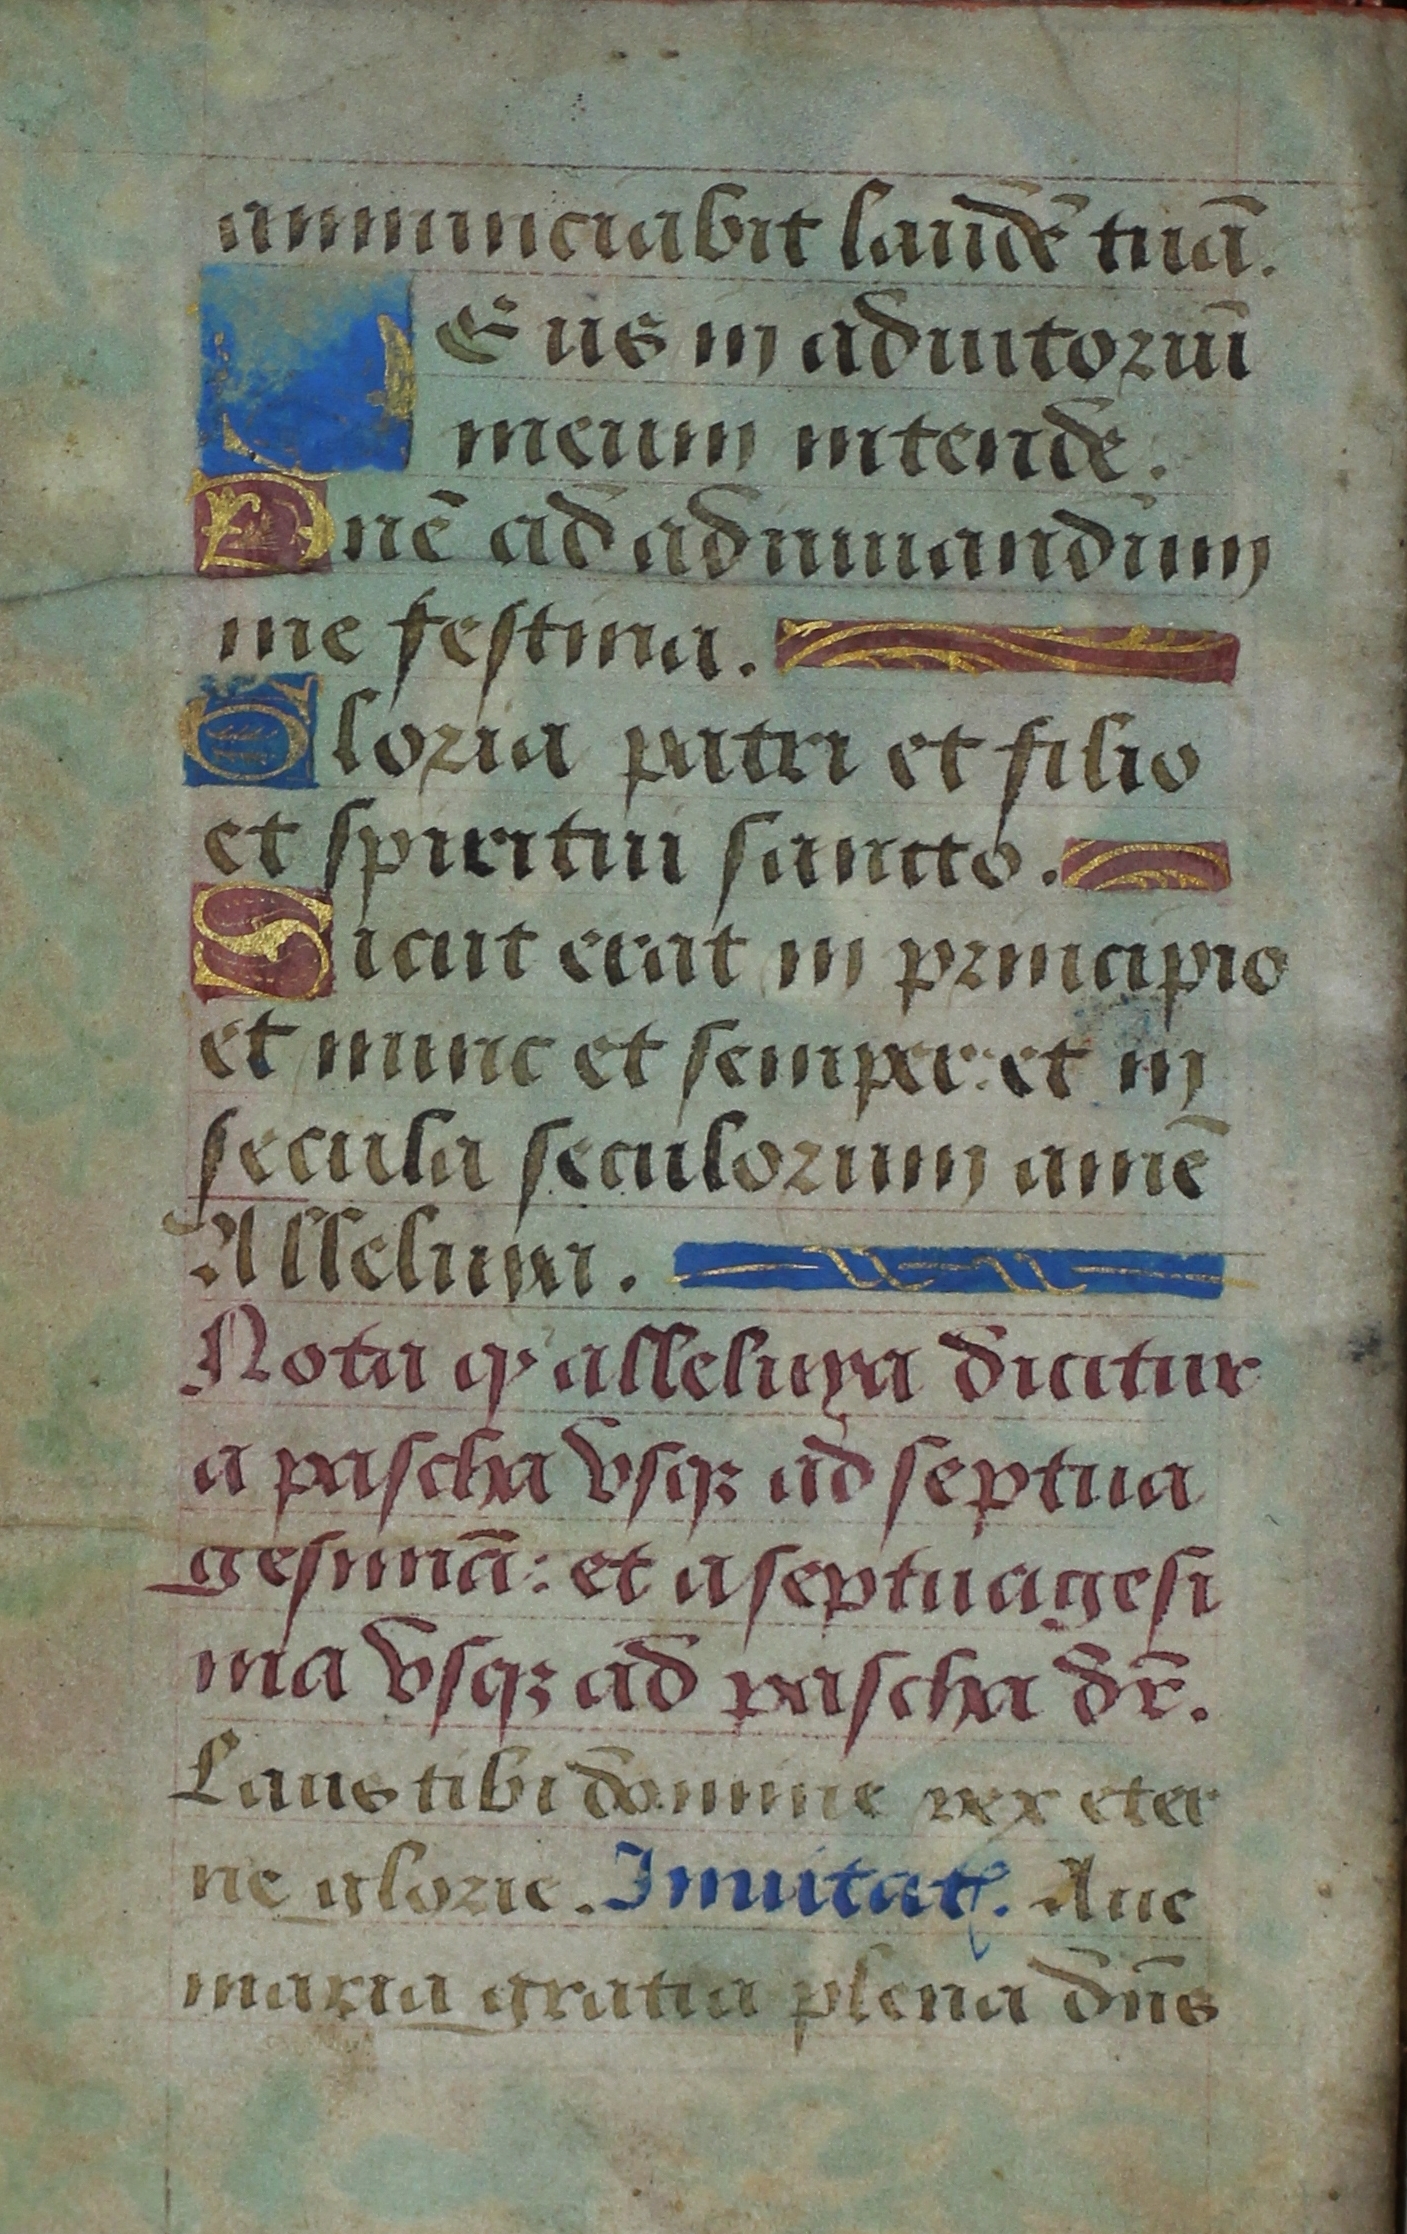 annunciabit laudē tuā.
DEus in adiutoriū
meum intende.
Dnē ad adiuuandum
me festina.
Gloria patri et filio
et spiritui sancto.
Sicut erat in principio
et nunc et semper: et in
secula seculorum amē
Alleluya.
Nota qꝫ alleluya dicitur
a pascha vsqꝫ ad septua
gesimā: et a septuagesi
ma vsqꝫ ad pascha dr̄.
Laus tibi domine rex eter
ne glorie. Inuitat. Aue
maria gratia plena dn̄s